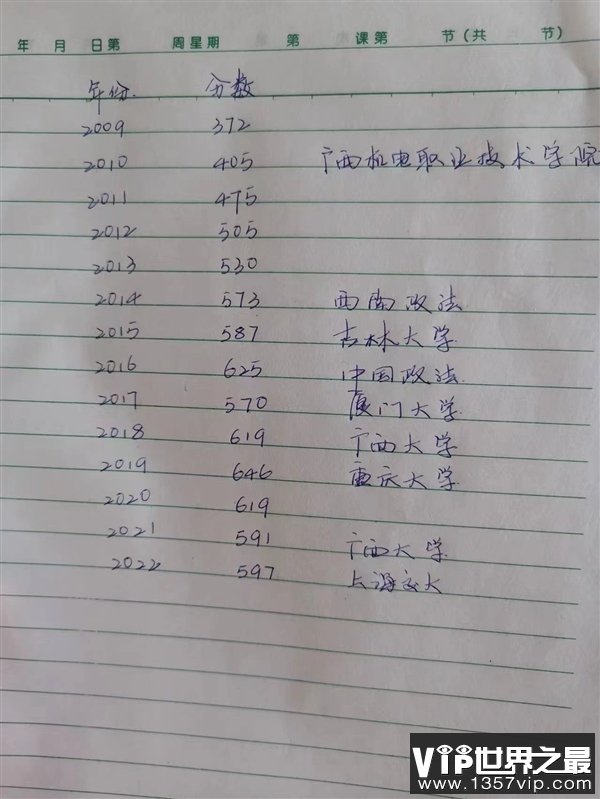 年 月 日第 周星期 第 课第 节(共 节)
年份 分数
2009 372
2010 405 广西机电职业技术学院
2011 475
2012 505
2013 530
2014 573 西南政法
2015 587 吉林大学
2016 625 中国政法
2017 570 厦门大学
2018 619 广西大学
2019 646 重庆大学
2020 619
2021 591 广西大学
2022 597 上海交大
VIP世界之最
www.1357vip.com